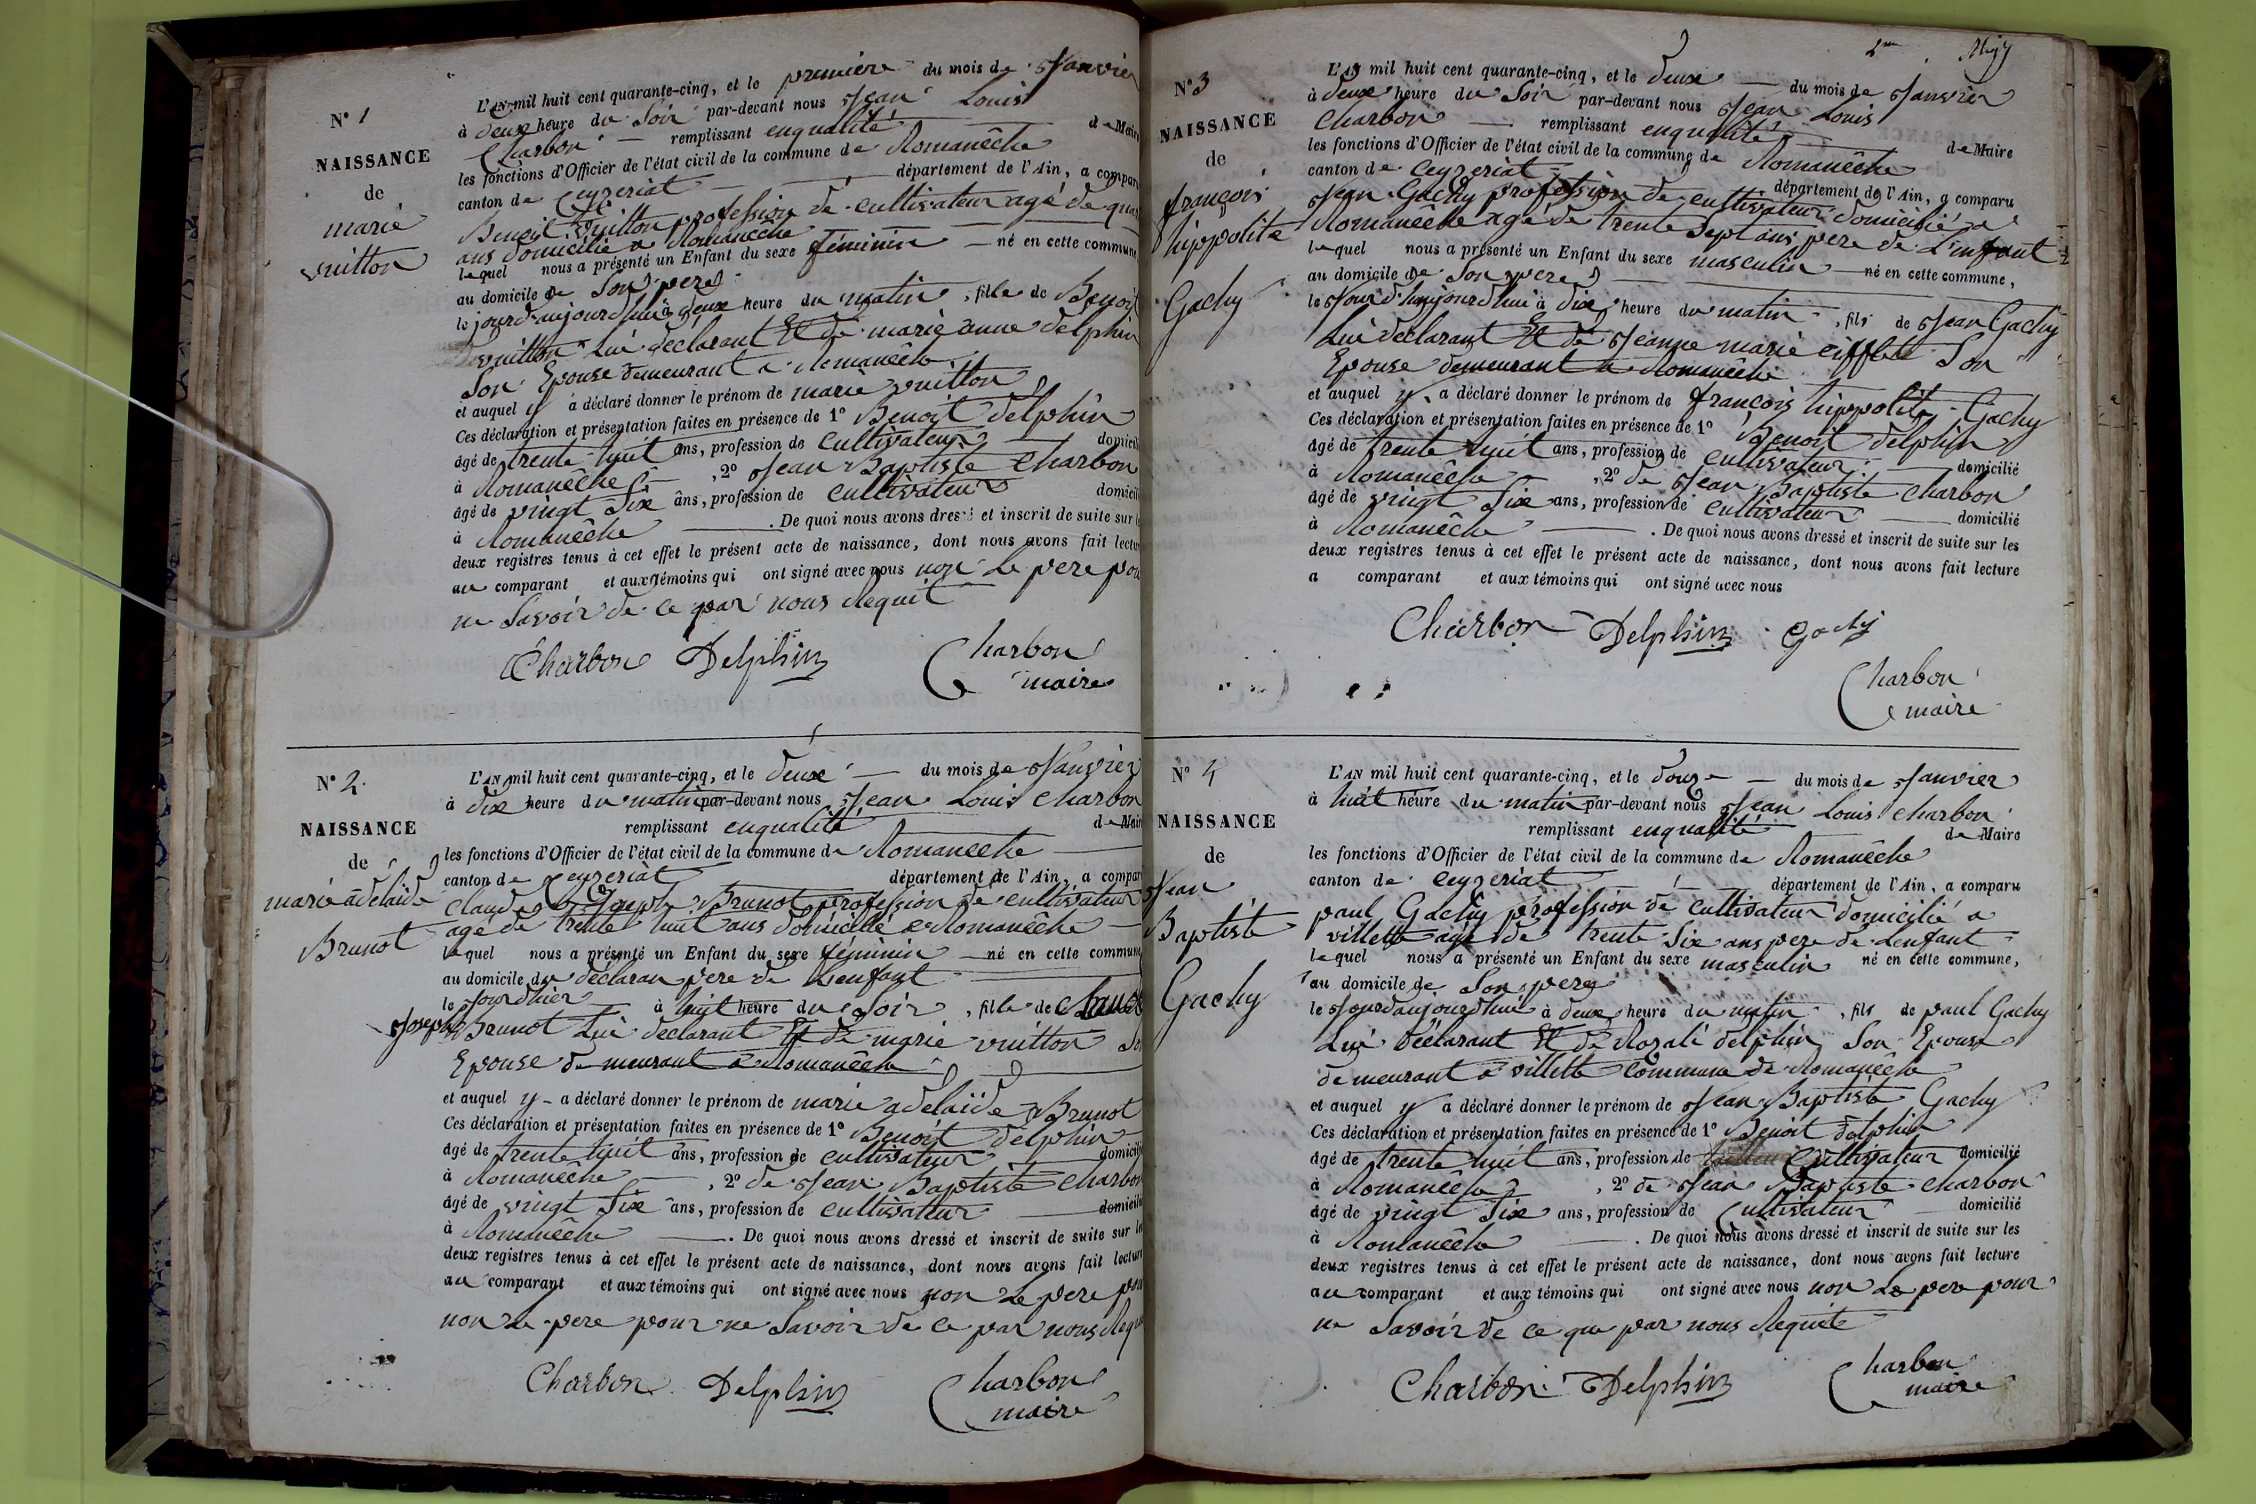 N° 1
NAISSANCE
de
marie
vuitton
L'AN mil huit cent quarante-cinq, et le premiere du mois de Janvier
à deux heure du Soir par-devant nous Jean Louis
Charbon remplissant enqualité de Maire
les fonctions d'Officier de l'état civil de la commune de Romanêche
canton de Ceyzeriat département de l'Ain, a compar
Benoit vuitton profession de cultivateur agé de qua
ans domicilié a Romanêche
lequel nous a présenté un Enfant du sexe féminin né en cette commune
au domicile de Son pere
le jourd'aujourd'hui à deux heure du matin, fille de Benoit
vuitton Lui declarant Et de marie anne delphin
Son Epouse demeurant a Romanêche
et auquel y a déclaré donner le prénom de marie vuitton
Ces déclaration et présentation faites en présence de 1° Benoit delphin
âgé de trente huit ans, profession de cultivateur domicil
à Romanêche, 2° Jean Baptiste Charbon
âgé de vingt Six ans, profession de cultivateur domicil
à Romanêche. De quoi nous avons dressé et inscrit de suite sur l
deux registres tenus à cet effet le présent acte de naissance, dont nous avons fait lectu
au comparant et aux témoins qui ont signé avec nous non Le pere pou
ne Savoir de ce par nous Requit
Charbon Delphin Charbon
maire
N° 2.
NAISSANCE
de
marie adelaïde
Brunot
L'AN mil huit cent quarante-cinq, et le deux du mois de Janvier
à dix heure du matin par-devant nous Jean Louis Charbon
remplissant enqualité de Mair
les fonctions d'Officier de l'état civil de la commune de Romanêche
canton de Ceyzeriat département de l'Ain, a compar
Claude Joseph Brunot profession de cultivateur
agé de trente huit ans domicilié a Romanêche
lequel nous a présenté un Enfant du sexe féminin né en cette commune
au domicile du déclaran pere de Lenfant
le Jourdhier à huit heure du Soir, fille de Claude
Joseph Brunot Lui declarant Et de marie vuitton
Epouse demeurant a Romanêche
et auquel y a déclaré donner le prénom de marie adelaïde Brunot
Ces déclaration et présentation faites en présence de 1° Benoit delphin
âgé de trente huit ans, profession de cultivateur domicili
à Romanêche, 2° de Jean Baptiste Charbon
âgé de vingt Six ans, profession de cultivateur domicili
à Romanêche. De quoi nous avons dressé et inscrit de suite sur le
deux registres tenus à cet effet le présent acte de naissance, dont nous avons fait lectur
au comparant et aux témoins qui ont signé avec nous non Le pere pou
non Le pere pour ne Savoir de ce par nous Requ
Charbon Delphin Charbon
maire
2me
N° 3
NAISSANCE
de
françois
hippolite
Gachy
L'AN mil huit cent quarante-cinq, et le deux du mois de Janvier
à deux heure du Soir par-devant nous Jean Louis
Charbon remplissant enqualité de Maire
les fonctions d'Officier de l'état civil de la commune de Romanêche
canton de Ceyzeriat département de l'Ain, a comparu
Jean Gachy profession de cultivateur domicilié a
Romanêche agé de trente Sept ans pere de L'infant
lequel nous a présenté un Enfant du sexe masculin né en cette commune,
au domicile de Son pere
le Jourd'huujourdhui à dix heure du matin, fils de Jean Gachy
Lui declarant Et de Jeanne marie Son
Epouse demeurant a Romanêche
et auquel y a déclaré donner le prénom de françois hippolite Gachy
Ces déclaration et présentation faites en présence de 1° Benoit delphin
âgé de trente huit ans, profession de cultivateur domicilié
à Romanêche, 2° de Jean Baptiste Charbon
âgé de vingt Six ans, profession de cultivateur domicilié
à Romanêche. De quoi nous avons dressé et inscrit de suite sur les
deux registres tenus à cet effet le présent acte de naissance, dont nous avons fait lecture
a comparant et aux témoins qui ont signé avec nous
Charbon Delphin Gachy
Charbon
maire
N° 4
NAISSANCE
de
Jean
Baptiste
Gachy
L'AN mil huit cent quarante-cinq, et le douze du mois de Janvier
à huit heure du matin par-devant nous Jean Louis Charbon
remplissant enqualité de Maire
les fonctions d'Officier de l'état civil de la commune de Romanêche
canton de Ceyzeriat département de l'Ain, a comparu
paul Gachy profession de cultivateur domicilié a
villette agé de trente Six ans pere de Lenfant
lequel nous a présenté un Enfant du sexe masculin né en cette commune,
au domicile de Son pere
le Jourdaujourdhui à deux heure du matin, fils de paul Gachy
Lui Déclarant Et de Rosali delphin Son Epouse
demeurant a villette Commune de Romanêche
et auquel y a déclaré donner le prénom de Jean Baptiste Gachy
Ces déclaration et présentation faites en présence de 1° Benoit delphin
âgé de trente huit ans, profession de Cultivateur domicilié
à Romanêche, 2° de Jean Baptiste Charbon
âgé de vingt Six ans, profession de Cultivateur domicilié
à Romanêche. De quoi nous avons dressé et inscrit de suite sur les
deux registres tenus à cet effet le présent acte de naissance, dont nous avons fait lecture
au comparant et aux témoins qui ont signé avec nous non Le pere pour
ne Savoir de ce que par nous Requit
Charbon Delphin Charbon
maire